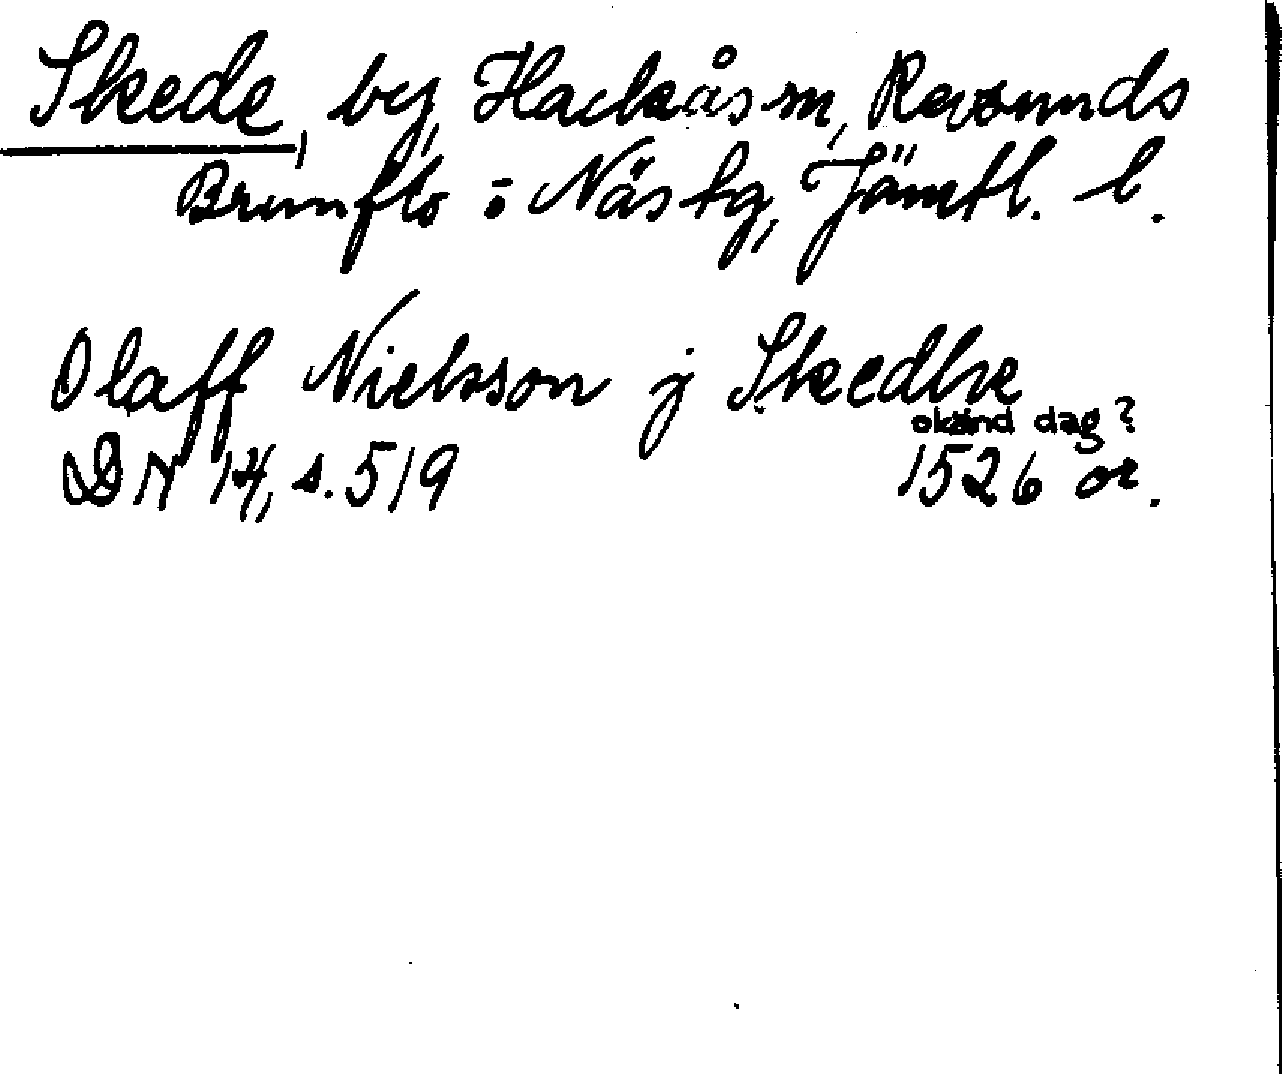 Skede, by, Hackås sn, Revsunds
Brunflo o Näs tg, Jämtl. l.
Olaff Nielsson j Skedhe
okänd dag?
DN 14, s. 519 1526 or.